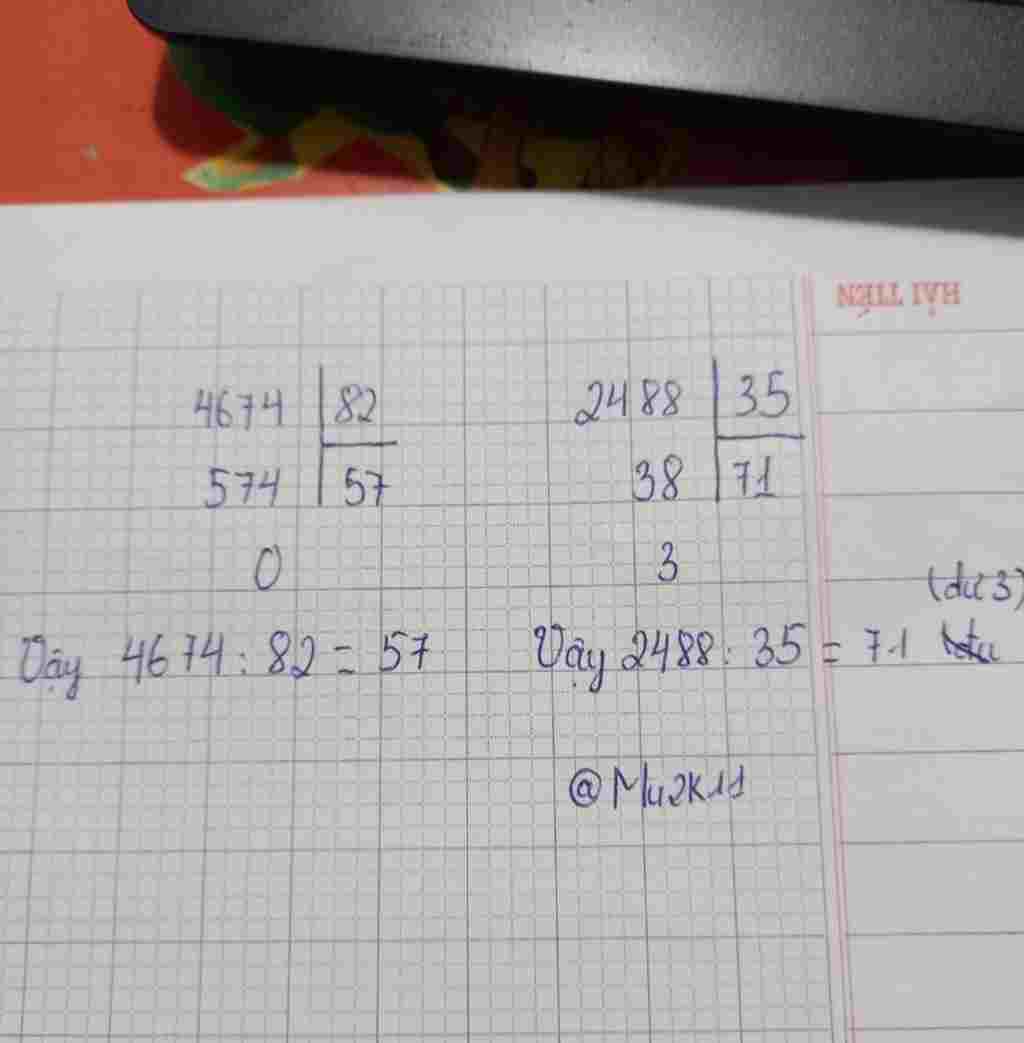 HẢI TIẾN
4674 82
574 57
0
Vậy 4674 : 82 = 57
2488 35
38 71
3
(dư 3)
Vậy 2488 : 35 = 71
@Mu2K11